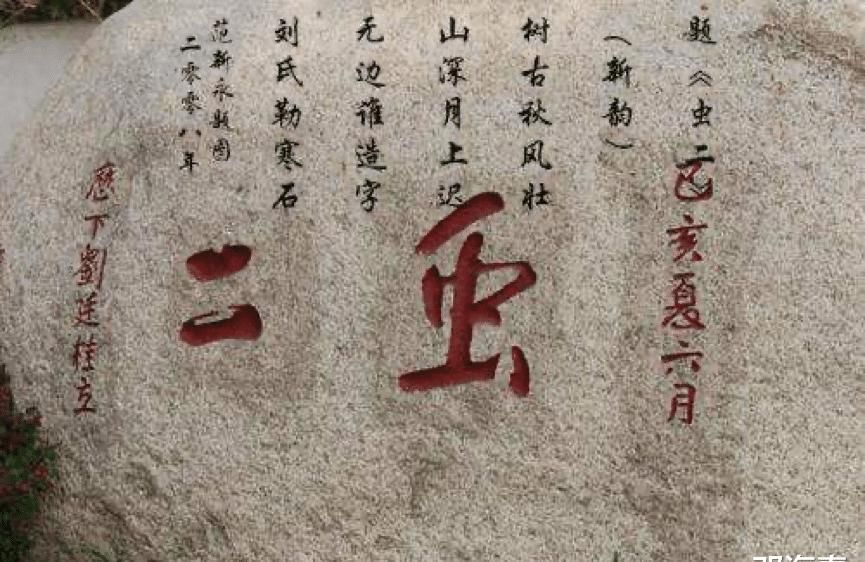 题《虫二
己亥夏六月
（新韵）
树古秋风壮
山深月上迟
无边谁造字
刘氏勒寒石
虫二
范新永题图
二零零八年
歷下劉廷桂立